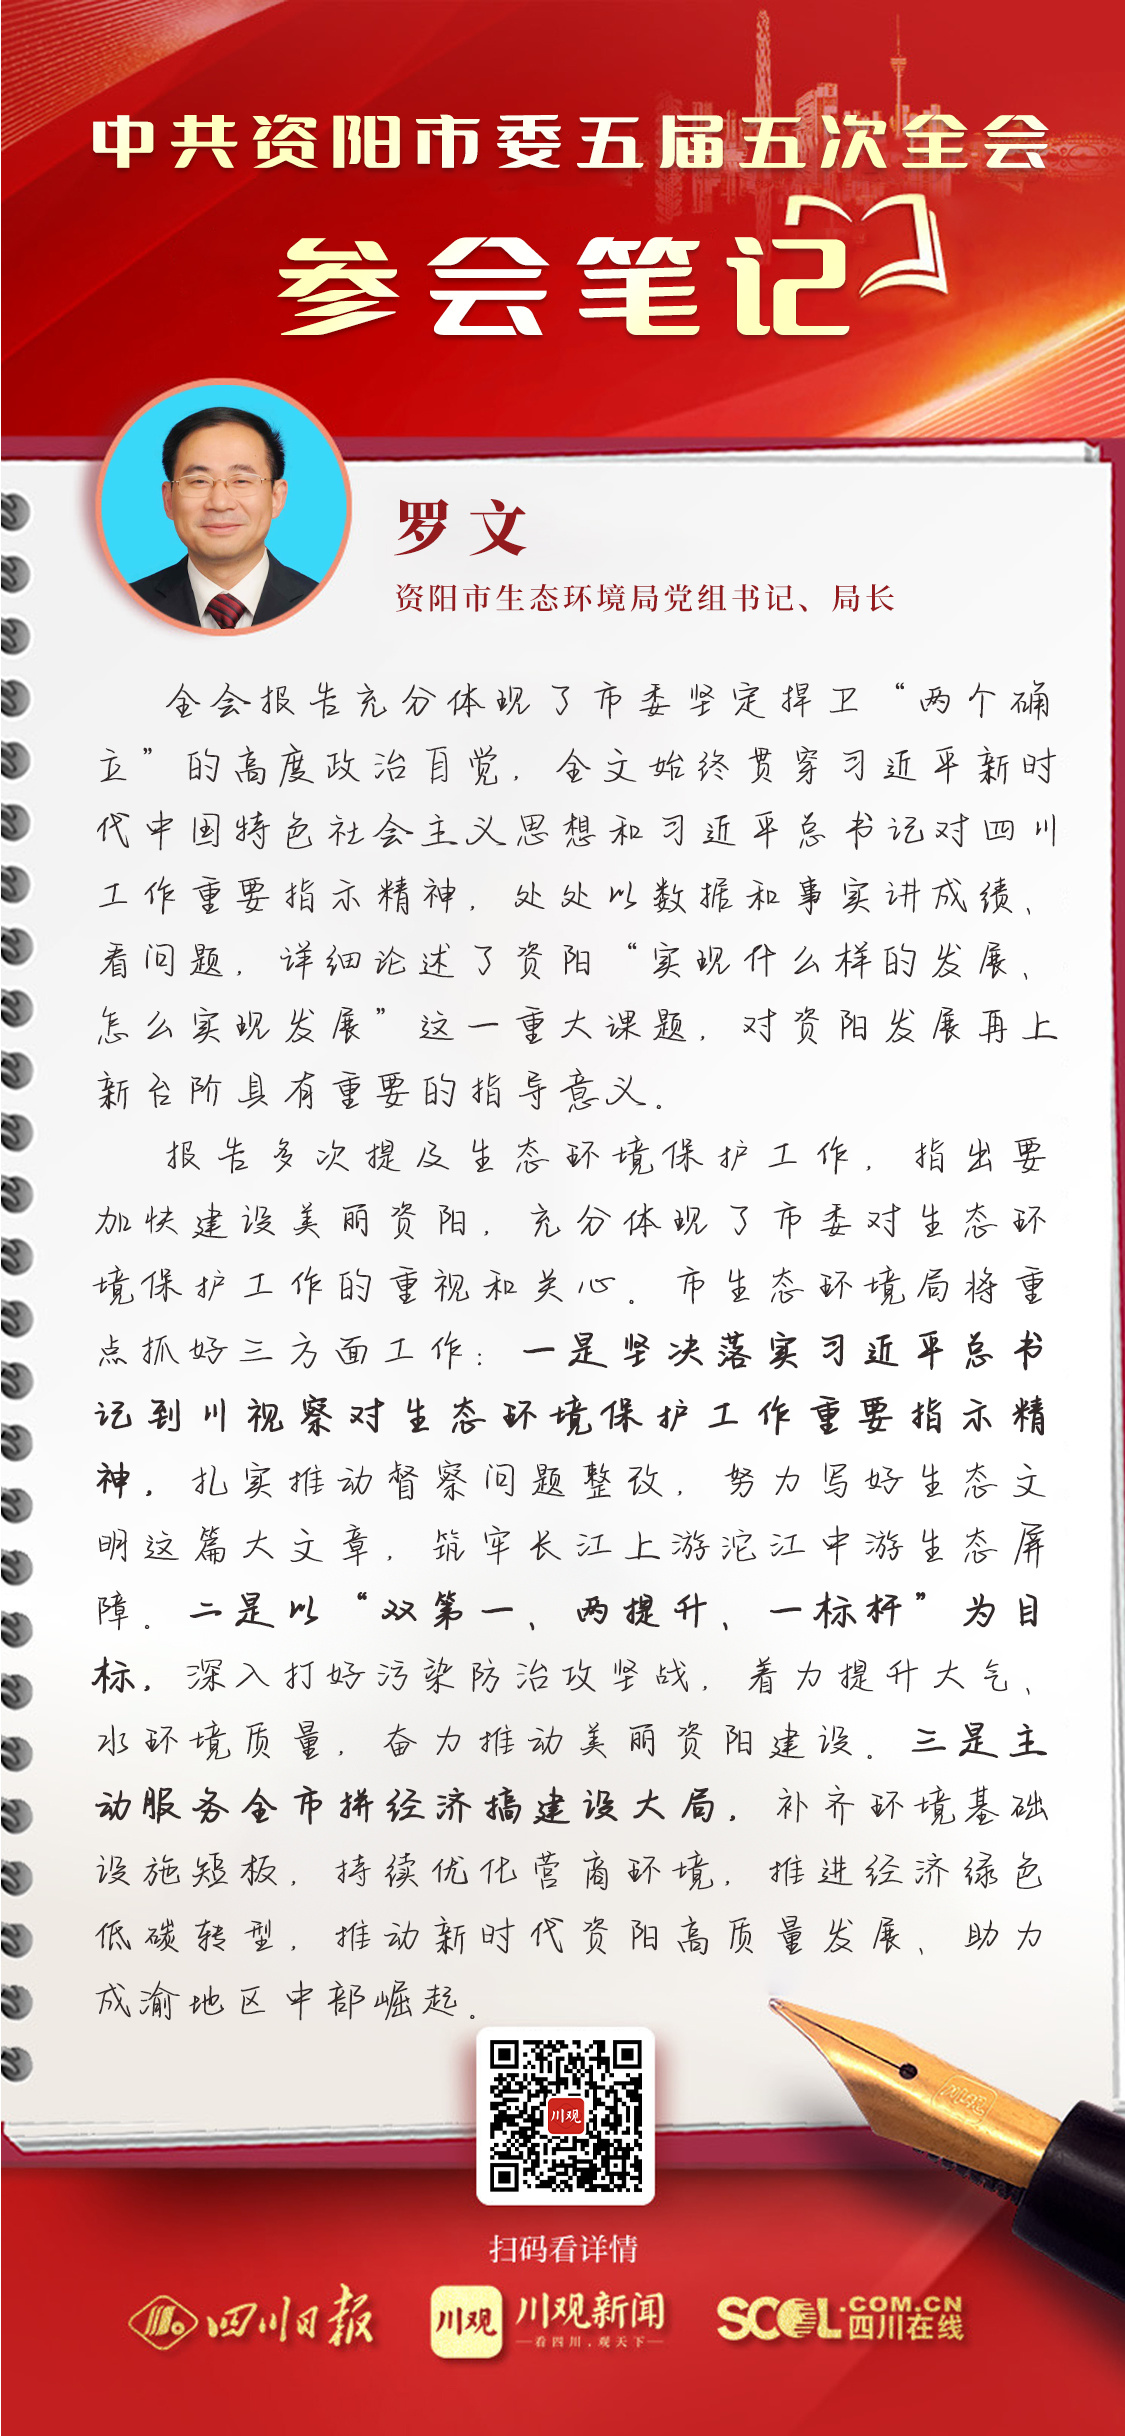 中共资阳市委五届五次全会
参会笔记
罗文
资阳市生态环境局党组书记、局长
全会报告充分体现了市委坚定捍卫“两个确
立”的高度政治自觉，全文始终贯穿习近平新时
代中国特色社会主义思想和习近平总书记对四川
工作重要指示精神，处处以数据和事实讲成绩、
看问题，详细论述了资阳“实现什么样的发展、
怎么实现发展”这一重大课题，对资阳发展再上
新台阶具有重要的指导意义。
报告多次提及生态环境保护工作，指出要
加快建设美丽资阳，充分体现了市委对生态环
境保护工作的重视和关心。市生态环境局将重
点抓好三方面工作：一是坚决落实习近平总书
记到川视察对生态环境保护工作重要指示精
神，扎实推动督察问题整改，努力写好生态文
明这篇大文章，筑牢长江上游沱江中游生态屏
障。二是以“双第一、两提升、一标杆”为目
标，深入打好污染防治攻坚战，着力提升大气、
水环境质量，奋力推动美丽资阳建设。三是主
动服务全市拼经济搞建设大局，补齐环境基础
设施短板，持续优化营商环境，推进经济绿色
低碳转型，推动新时代资阳高质量发展、助力
成渝地区中部崛起。
川观
扫码看详情
四川日报
川观 川观新闻
看四川，观天下
SCOL.COM.CN
四川在线